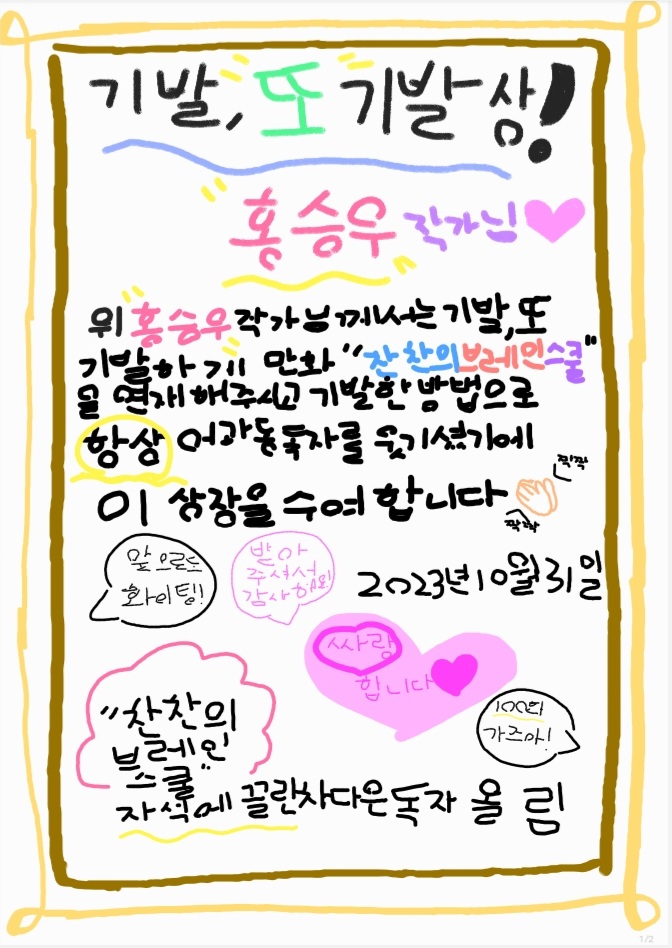 기발, 또 기발 상!
홍승우 작가님
위 홍승우 작가님께서는 기발,또
기발하게 만화 "찬찬의브레인스쿨"
을 연재해주시고 기발한 방법으로
항상 어과동독자를 웃기셨기에
이 상장을 수여 합니다
짝짝
짝짝
앞으로도
화이팅!
받아
주셔서
감사해요!
2023년10월31일
싸랑
합니다
100회
가즈아!
"찬찬의
브레인
스쿨"
자석에 끌린차다은독자 올림
1/2